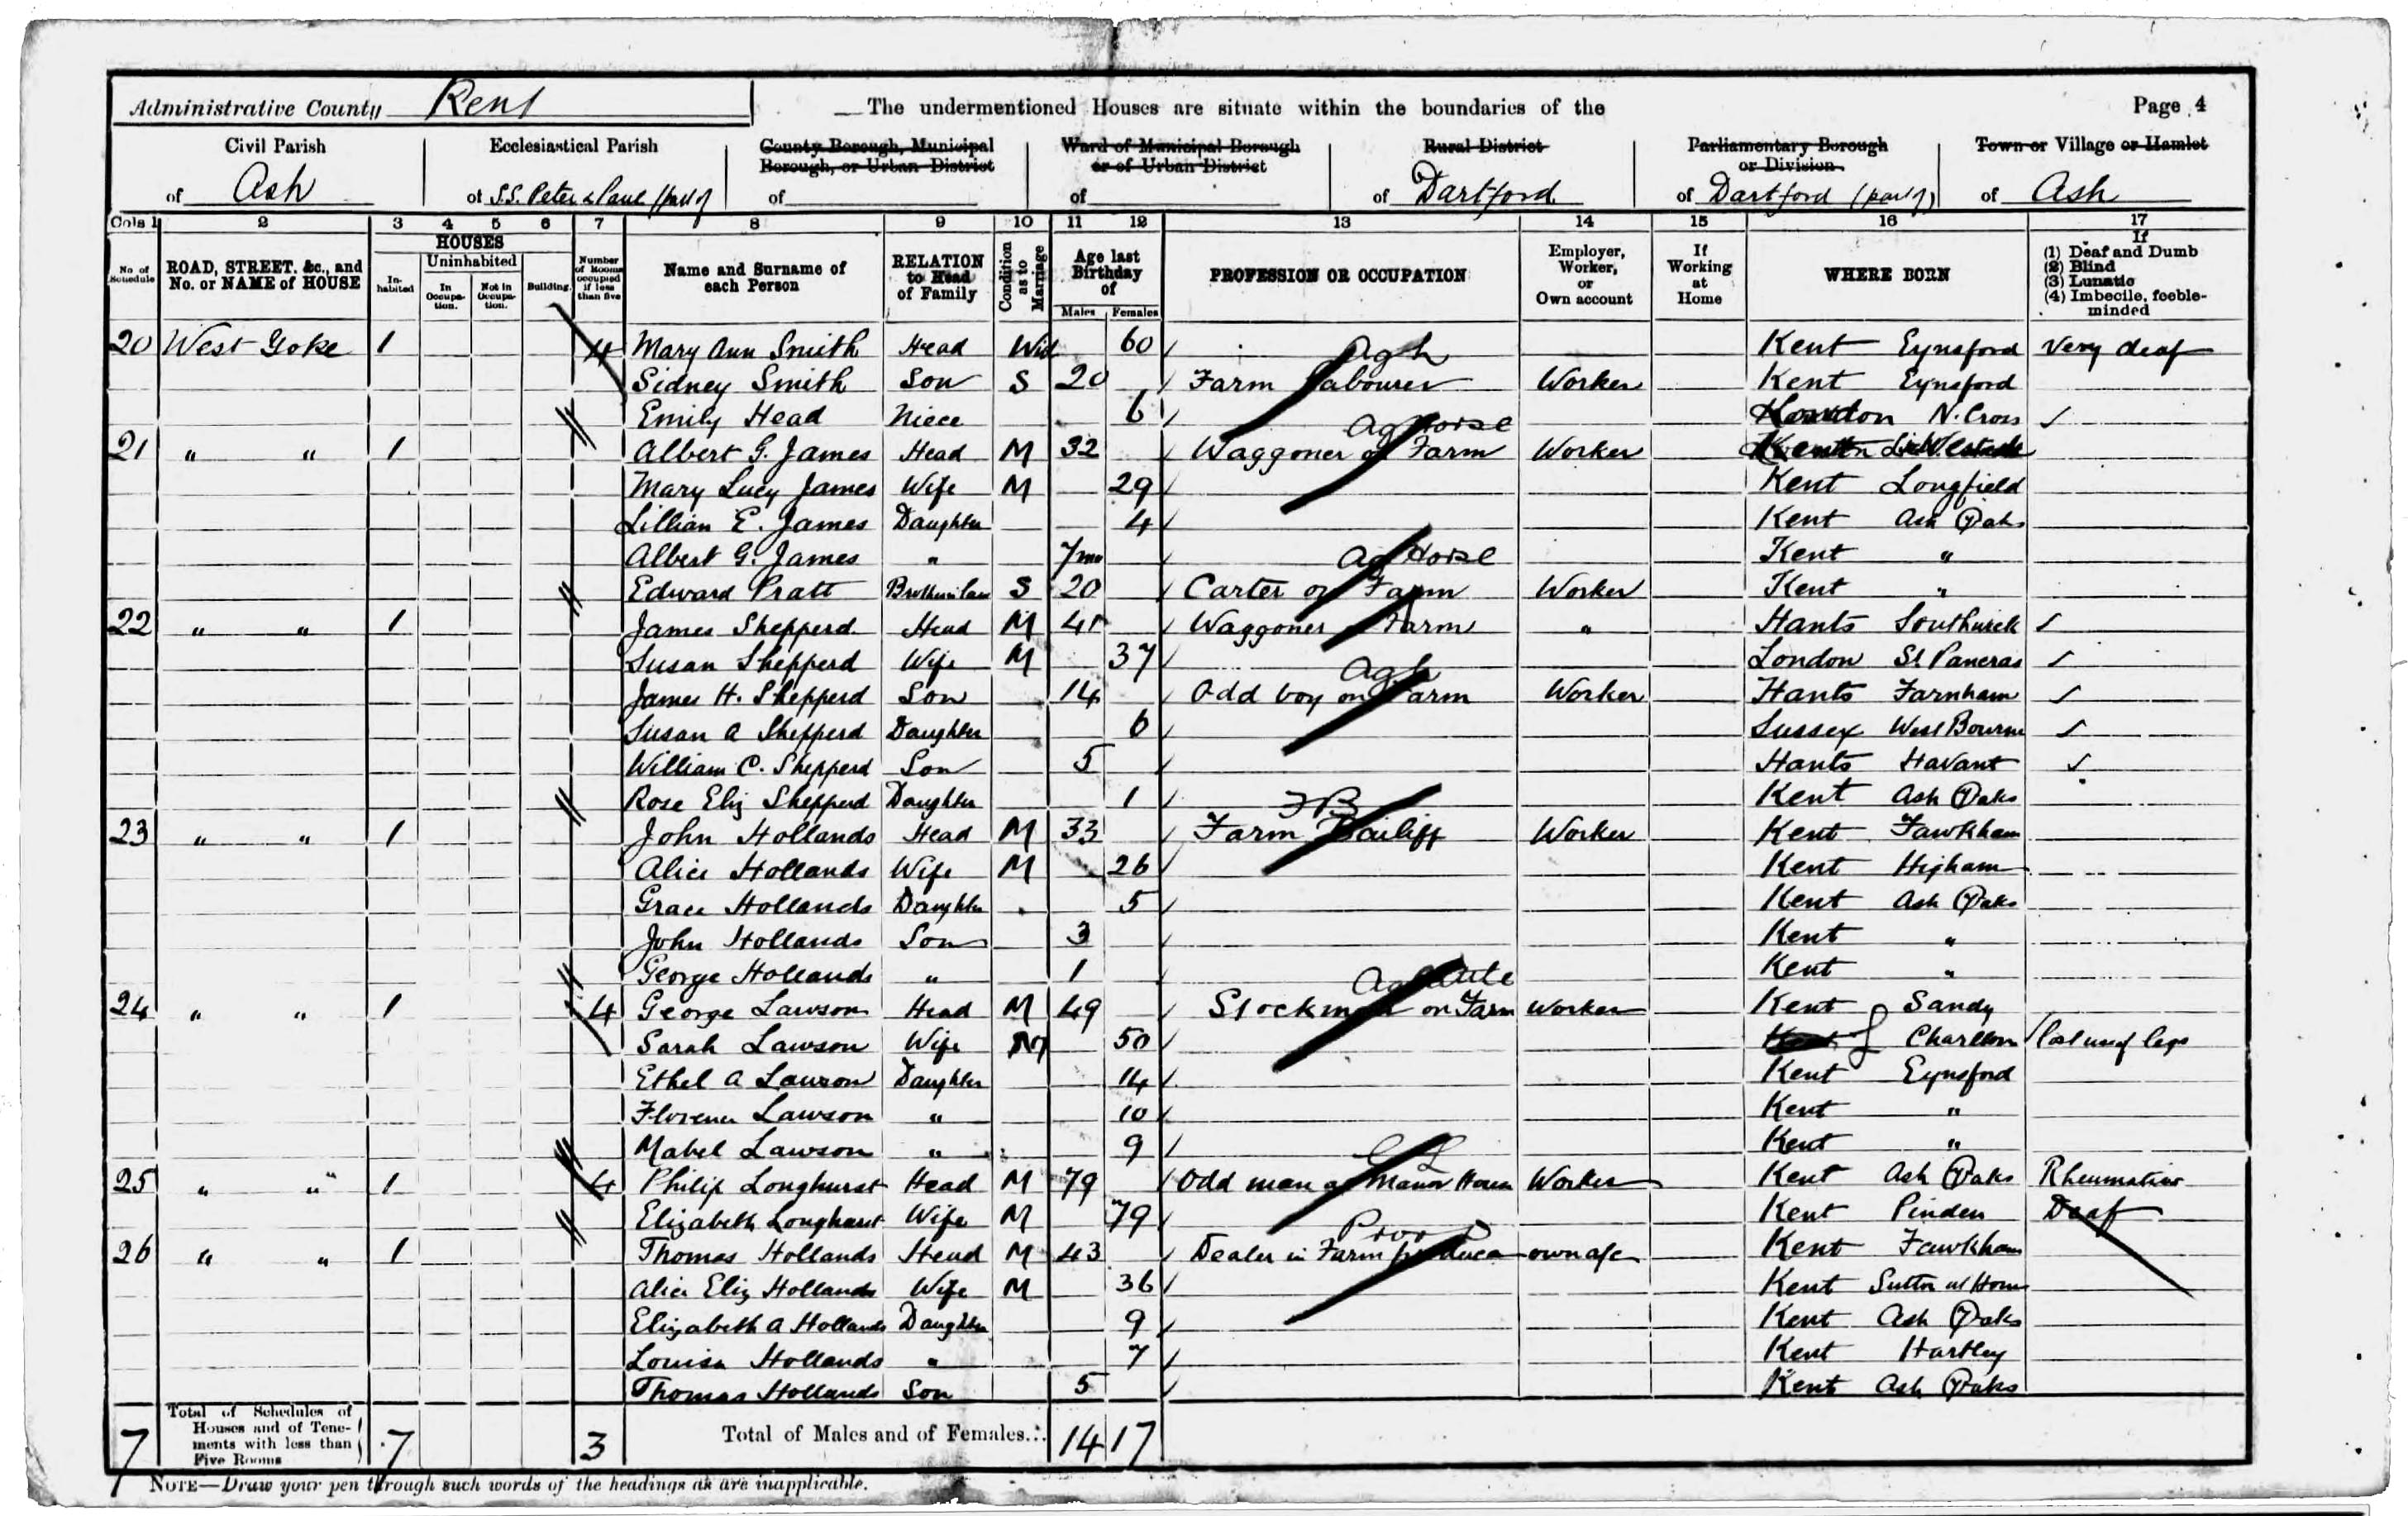 Administrative County Kent The undermentioned Houses are situate within the boundaries of the Page 4
Civil Parish Ecclesiastical Parish County Borough, Municipal Borough, or Urban District Ward of Municipal Borough or of Urban District Rural District Parliamentary Borough or Division Town or Village or Hamlet
of Ash of S.S. Peter & Paul (part of) of of of Dartford of Dartford (part of) of Ash
Cols 1 2 3 4 5 6 7 8 9 10 11 12 13 14 15 16 17
No of Schedule ROAD, STREET, &c., and No. or NAME of HOUSE HOUSES Inhabited Uninhabited In Occupation. Not in Occupation. Building. Number of Rooms occupied if less than five Name and Surname of each Person RELATION to Head of Family Condition as to Marriage Age last Birthday of Males Females PROFESSION OR OCCUPATION Employer, Worker, or Own account If Working at Home WHERE BORN If (1) Deaf and Dumb (2) Blind (3) Lunatic (4) Imbecile, feeble-minded
20 West Yoke 1 4 Mary Ann Smith Head Wid 60 Kent Eynsford Very deaf
Ag h
Sidney Smith Son S 20 Farm Labourer Worker Kent Eynsford
Emily Head Niece 6 London N. Cross
Ag Horse
21 " " 1 Albert G. James Head M 32 Waggoner on Farm Worker Kent
Mary Lucy James Wife M 29 Kent Longfield
Lillian E. James Daughter 4 Kent Ash Oaks
Albert G. James " 7mo Kent "
Ag Horse
Edward Pratt Brotherinlaw S 20 Carter on Farm Worker Kent "
22 " " 1 James Shepperd Head M 41 Waggoner Farm " Hants Southwick
Susan Shepperd Wife M 37 London St Pancras
Ag h
James H. Shepperd Son 14 Odd boy on Farm Worker Hants Farnham
Susan A Shepperd Daughter 6 Sussex West Bourne
William C. Shepperd Son 5 Hants Havant
Rose Eliz Shepperd Daughter 1 Kent Ash Oaks
FB
23 " " 1 John Hollands Head M 33 Farm Bailiff Worker Kent Fawkham
Alice Hollands Wife M 26 Kent Higham
Grace Hollands Daughter 5 Kent Ash Oaks
John Hollands Son 3 Kent "
George Hollands " 1 Kent "
Ag Cattle
24 " " 1 4 George Lawson Head M 49 Stockman on Farm Worker Kent Sandy
Sarah Lawson Wife M 50 Kent Charlton Lost use of legs
Ethel A Lawson Daughter 14 Kent Eynsford
Florence Lawson " 10 Kent "
Mabel Lawson " 9 Kent "
25 " " 1 4 Philip Longhurst Head M 79 Odd man at Manor House Worker Kent Ash Oaks Rheumatism
Elizabeth Longhurst Wife M 79 Kent Pinden Deaf
Prov D
26 " " 1 Thomas Hollands Head M 43 Dealer in Farm produce own a/c Kent Fawkham
Alice Eliz Hollands Wife M 36 Kent Sutton at Hone
Elizabeth A Hollands Daughter 9 Kent Ash Oaks
Louisa Hollands " 7 Kent Hartley
Thomas Hollands Son 5 Kent Ash Oaks
7 Total of Schedules of Houses and of Tenements with less than Five Rooms 7 3 Total of Males and of Females... 14 17
NOTE—Draw your pen through such words of the headings as are inapplicable.